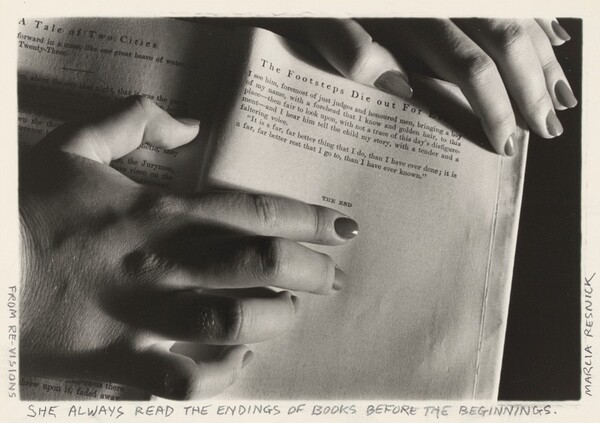 A Tale of Two Cities
forward in a mass, like one great heave of water
Twenty-Three.
The Footsteps Die out For
I see him, foremost of just judges and honoured men, bringing a boy
of my name, with a forehead that I know and golden hair, to this
place—then fair to look upon, with not a trace of this day's disfigure-
ment—and I hear him tell the child my story, with a tender and a
faltering voice.
"It is a far, far better thing that I do, than I have ever done; it is
a far, far better rest that I go to, than I have ever known."
THE END
the Jurymen,
drew upon it, faded away
FROM RE-VISIONS
MARCIA RESNICK
SHE ALWAYS READ THE ENDINGS OF BOOKS BEFORE THE BEGINNINGS.